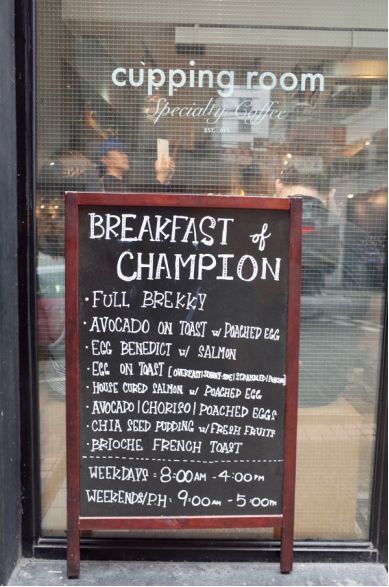 cupping room
Specialty Coffee
BREAKFAST of
CHAMPION
· FULL BREKKY
· AVOCADO ON TOAST w/ POACHED EGG
· EGG BENEDICT w/ SALMON
· EGG ON TOAST [OVEREASY|SUNNY-SIDE|SCRAMBLED|POACHED]
· HOUSE CURED SALMON w/ POACHED EGG
· AVOCADO|CHORISO|POACHED EGGS
· CHIA SEED PUDDING w/ FRESH FRUITS
· BRIOCHE FRENCH TOAST
WEEKDAYS : 8:00 AM - 4:00 PM
WEEKENDS/P.H: 9:00 AM - 5:00 PM